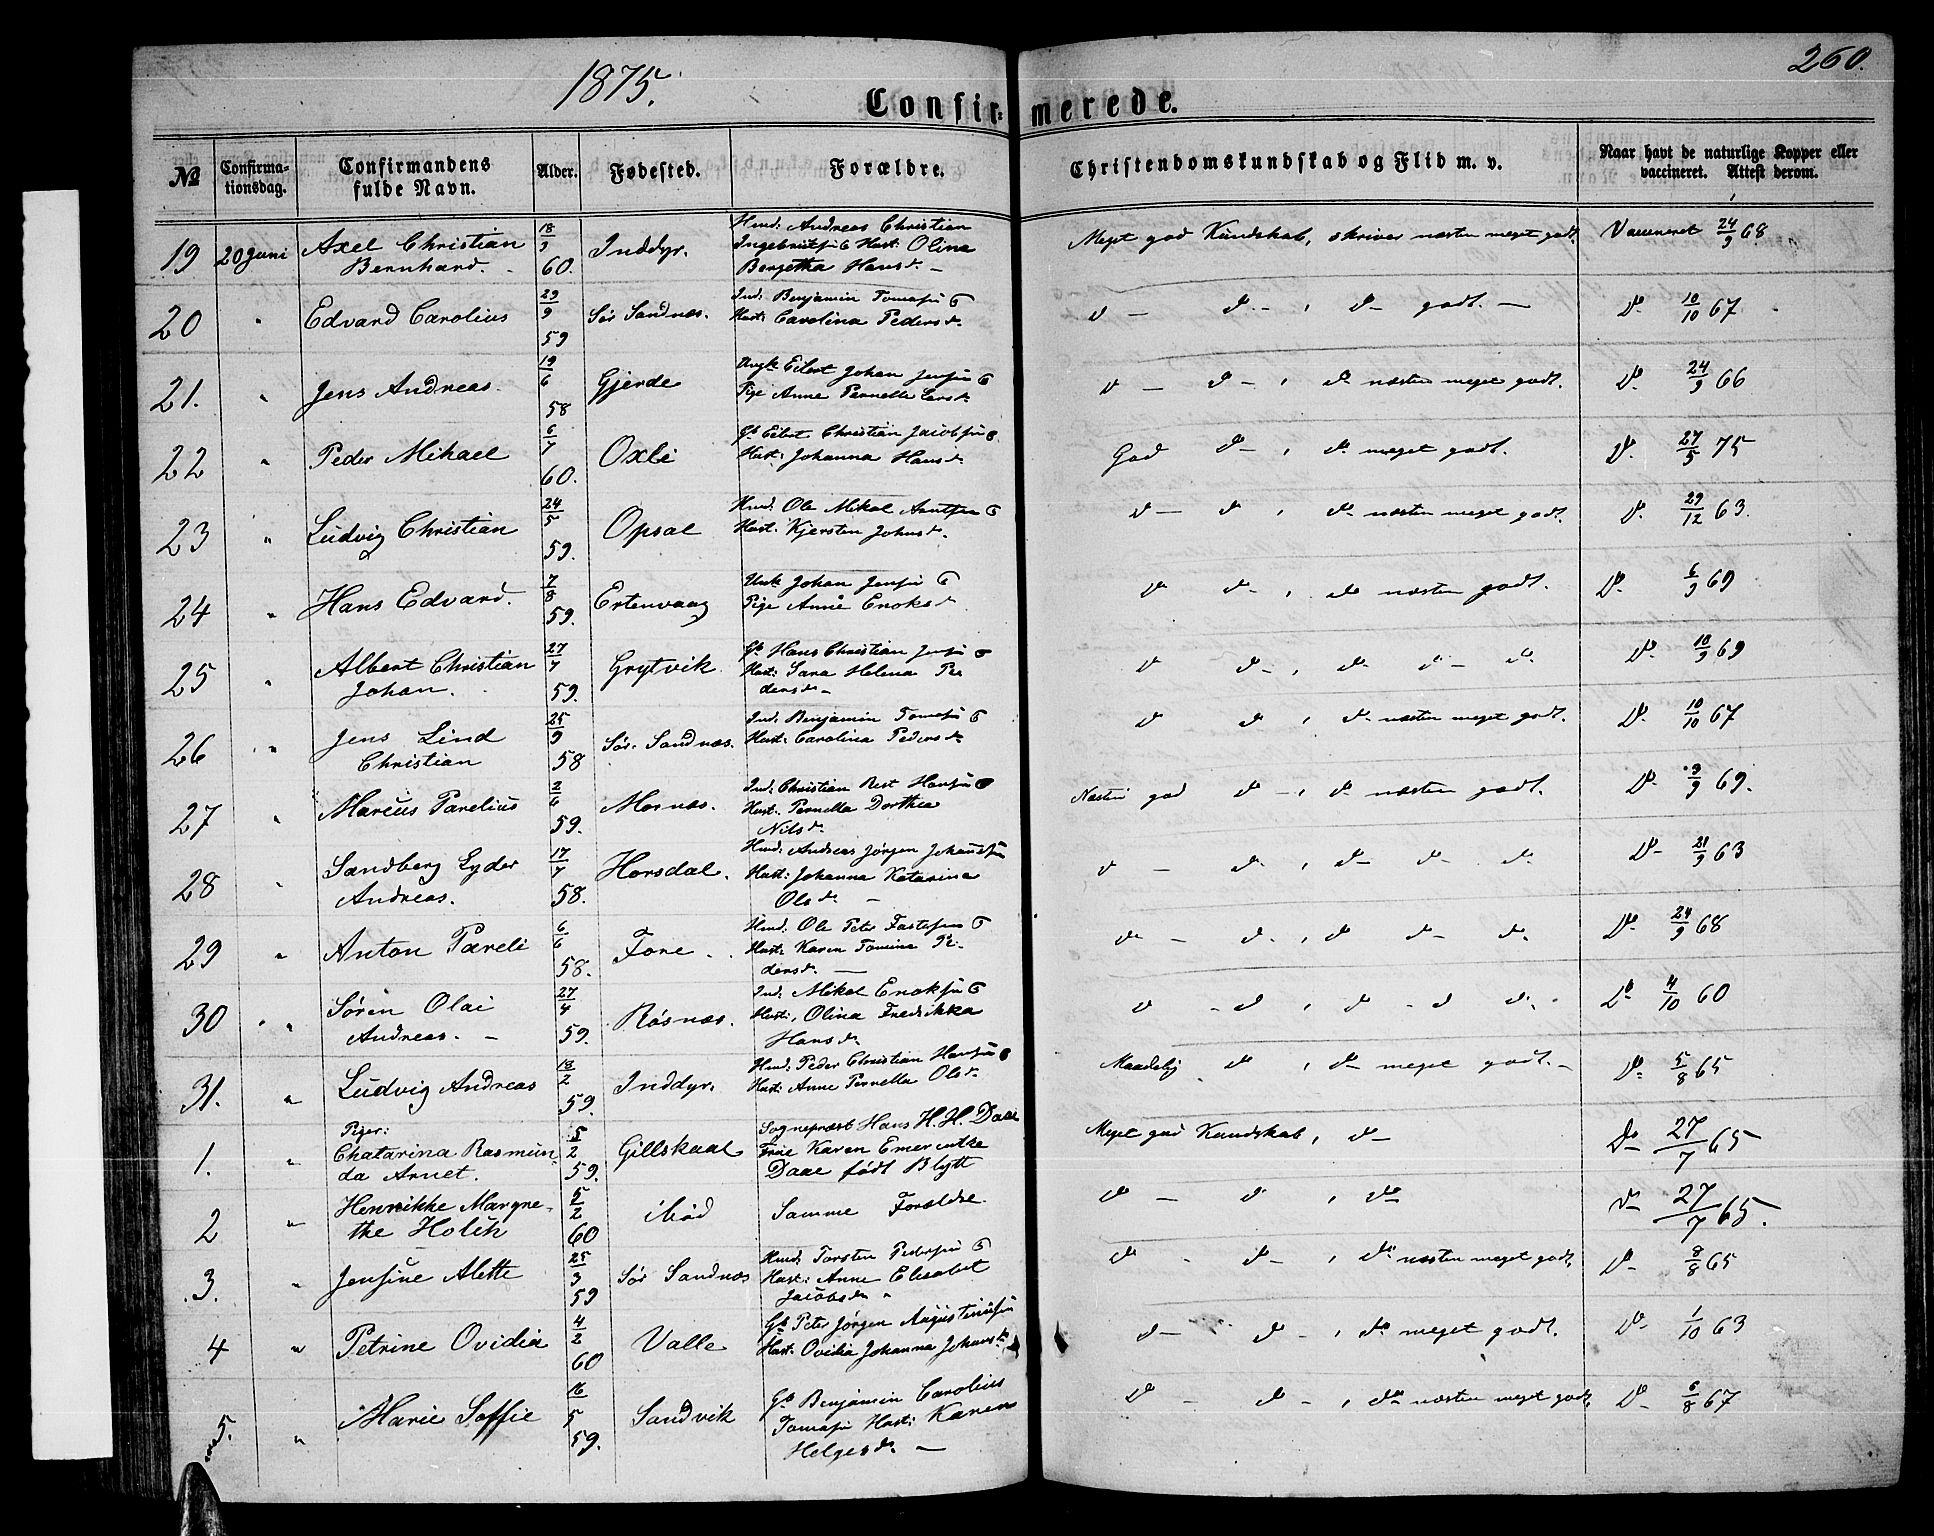 1875.
260.
Confirmerede.
№ Confirmationsdag. Confirmandens fulde Navn. Alder. Fødested. Forældre. Christendomskundskab og Flid m. v. Naar havt de naturlige Kopper eller vaccineret. Attest derom.
19 20 Juni Axel Christian 18/3 Inddyr. Hmd: Andreas Christian Meget god Kundskab, skriver næsten meget godt. Vaccineret 24/9 68
Bernhard. 60. Hust: Olina
Bergetha Hansd.
20 " Edvard Carolius 29/9 Sør Sandnæs. Ind: Benjamin d - d - , d godt. - D. 10/10 67
59 Hust: Carolina Pedersd.
21. " Jens Andreas. 19/6 Gjerde Eilert Johan d - d - , d næsten meget godt. D. 24/9 66
58 Pige Anne Pernelle
22 " Peder Mikael 6/7 Oxli Gb. Eilert Christian God d - , d meget godt. D. 27/5 75
60. Hust: Johanna Hansd.
23 " Ludvig Christian 24/5 Opsal Hmd. Ole Mikal d - d , d næsten meget godt. D. 29/12 63.
59. Hust: Kjersten
24 " Hans Edvard. 7/8 Ertenvaag Johan d d - , d næsten godt. D. 6/9 69
59. Pige Anne Enoksd.
25 " Albert Christian 27/7 Grytvik Gb. Hans Christian d d - , d d - d D. 10/9 69
Johan. 59. Hust: Sara Helena Pe
dersd. -
26 " Jens Lind 25/9 Sør: Sandnæs. Ind: Benjamin d d , d næsten meget godt. D. 10/10 67
Christian 58 Hust: Carolina Pedersd.
27 " Marcus Parelius 2/6 Mosnæs. Ind: Christian Næsten god d - , d næsten godt. D. 9/9 69.
59. Hust: Pernella Dorthea
Nilsd.
28 " Sandberg Lyder 17/7 Horsdal. Hmd: Andreas Jørgen d - d , d - d - d D. 21/9 63
Andreas. 58. Hust: Johanna Katarina
Olsd. -
29 " Anton Pareli 6/6 Fore Hmd. Ole Peter d - d. , d d - d D. 24/9 68
58. Hust: Karen Tomine Pe-
dersd. -
30 " Søren Olai 27/4 Røsnæs. Ind: Mikal d - d , d - d d D. 4/10 60
Andreas. - 59. Hust: Olina Fredrikka
Hansd.
31. " Ludvig Andreas 13/2 Inddyr. Hmd: Peder Christian Maadelig d , d meget godt. - D. 5/8 65
59. Hust: Anne Pernella Olsd.
Piger:
1. " Chatarina Rasmun 5/2 Gillskaal Sognepræst Hans H. H. Daae Meget god Kundskab, d - D. 27/7 65
da Arnet. 59. Frue Karen Emerentke
Daae født Blytt
2 " Henrikke Margre- 5/2 ibid Samme Forældre d - d , d D. 27/7 65.
the Holck 60
3. " Jensine Alette 25/3 Sør Sandnæs Hmd: Torsten d - d - , d næsten meget godt. D. 8/8 65
59 Hust: Anne Elisabet
Jacobsd. "
4 " Petrine Ovidia 4/2 Valle Gb. Peter Jørgen d - d - , d meget godt. D. 1/10 63
60 Hust: Ovidia Johanna
5. " Marie Soffie 16/5 Sandvik Gb. Benjamin Carolius d - d - , d næsten meget godt. D. 6/8 67
59. Hust: Karen
Helgesd. -